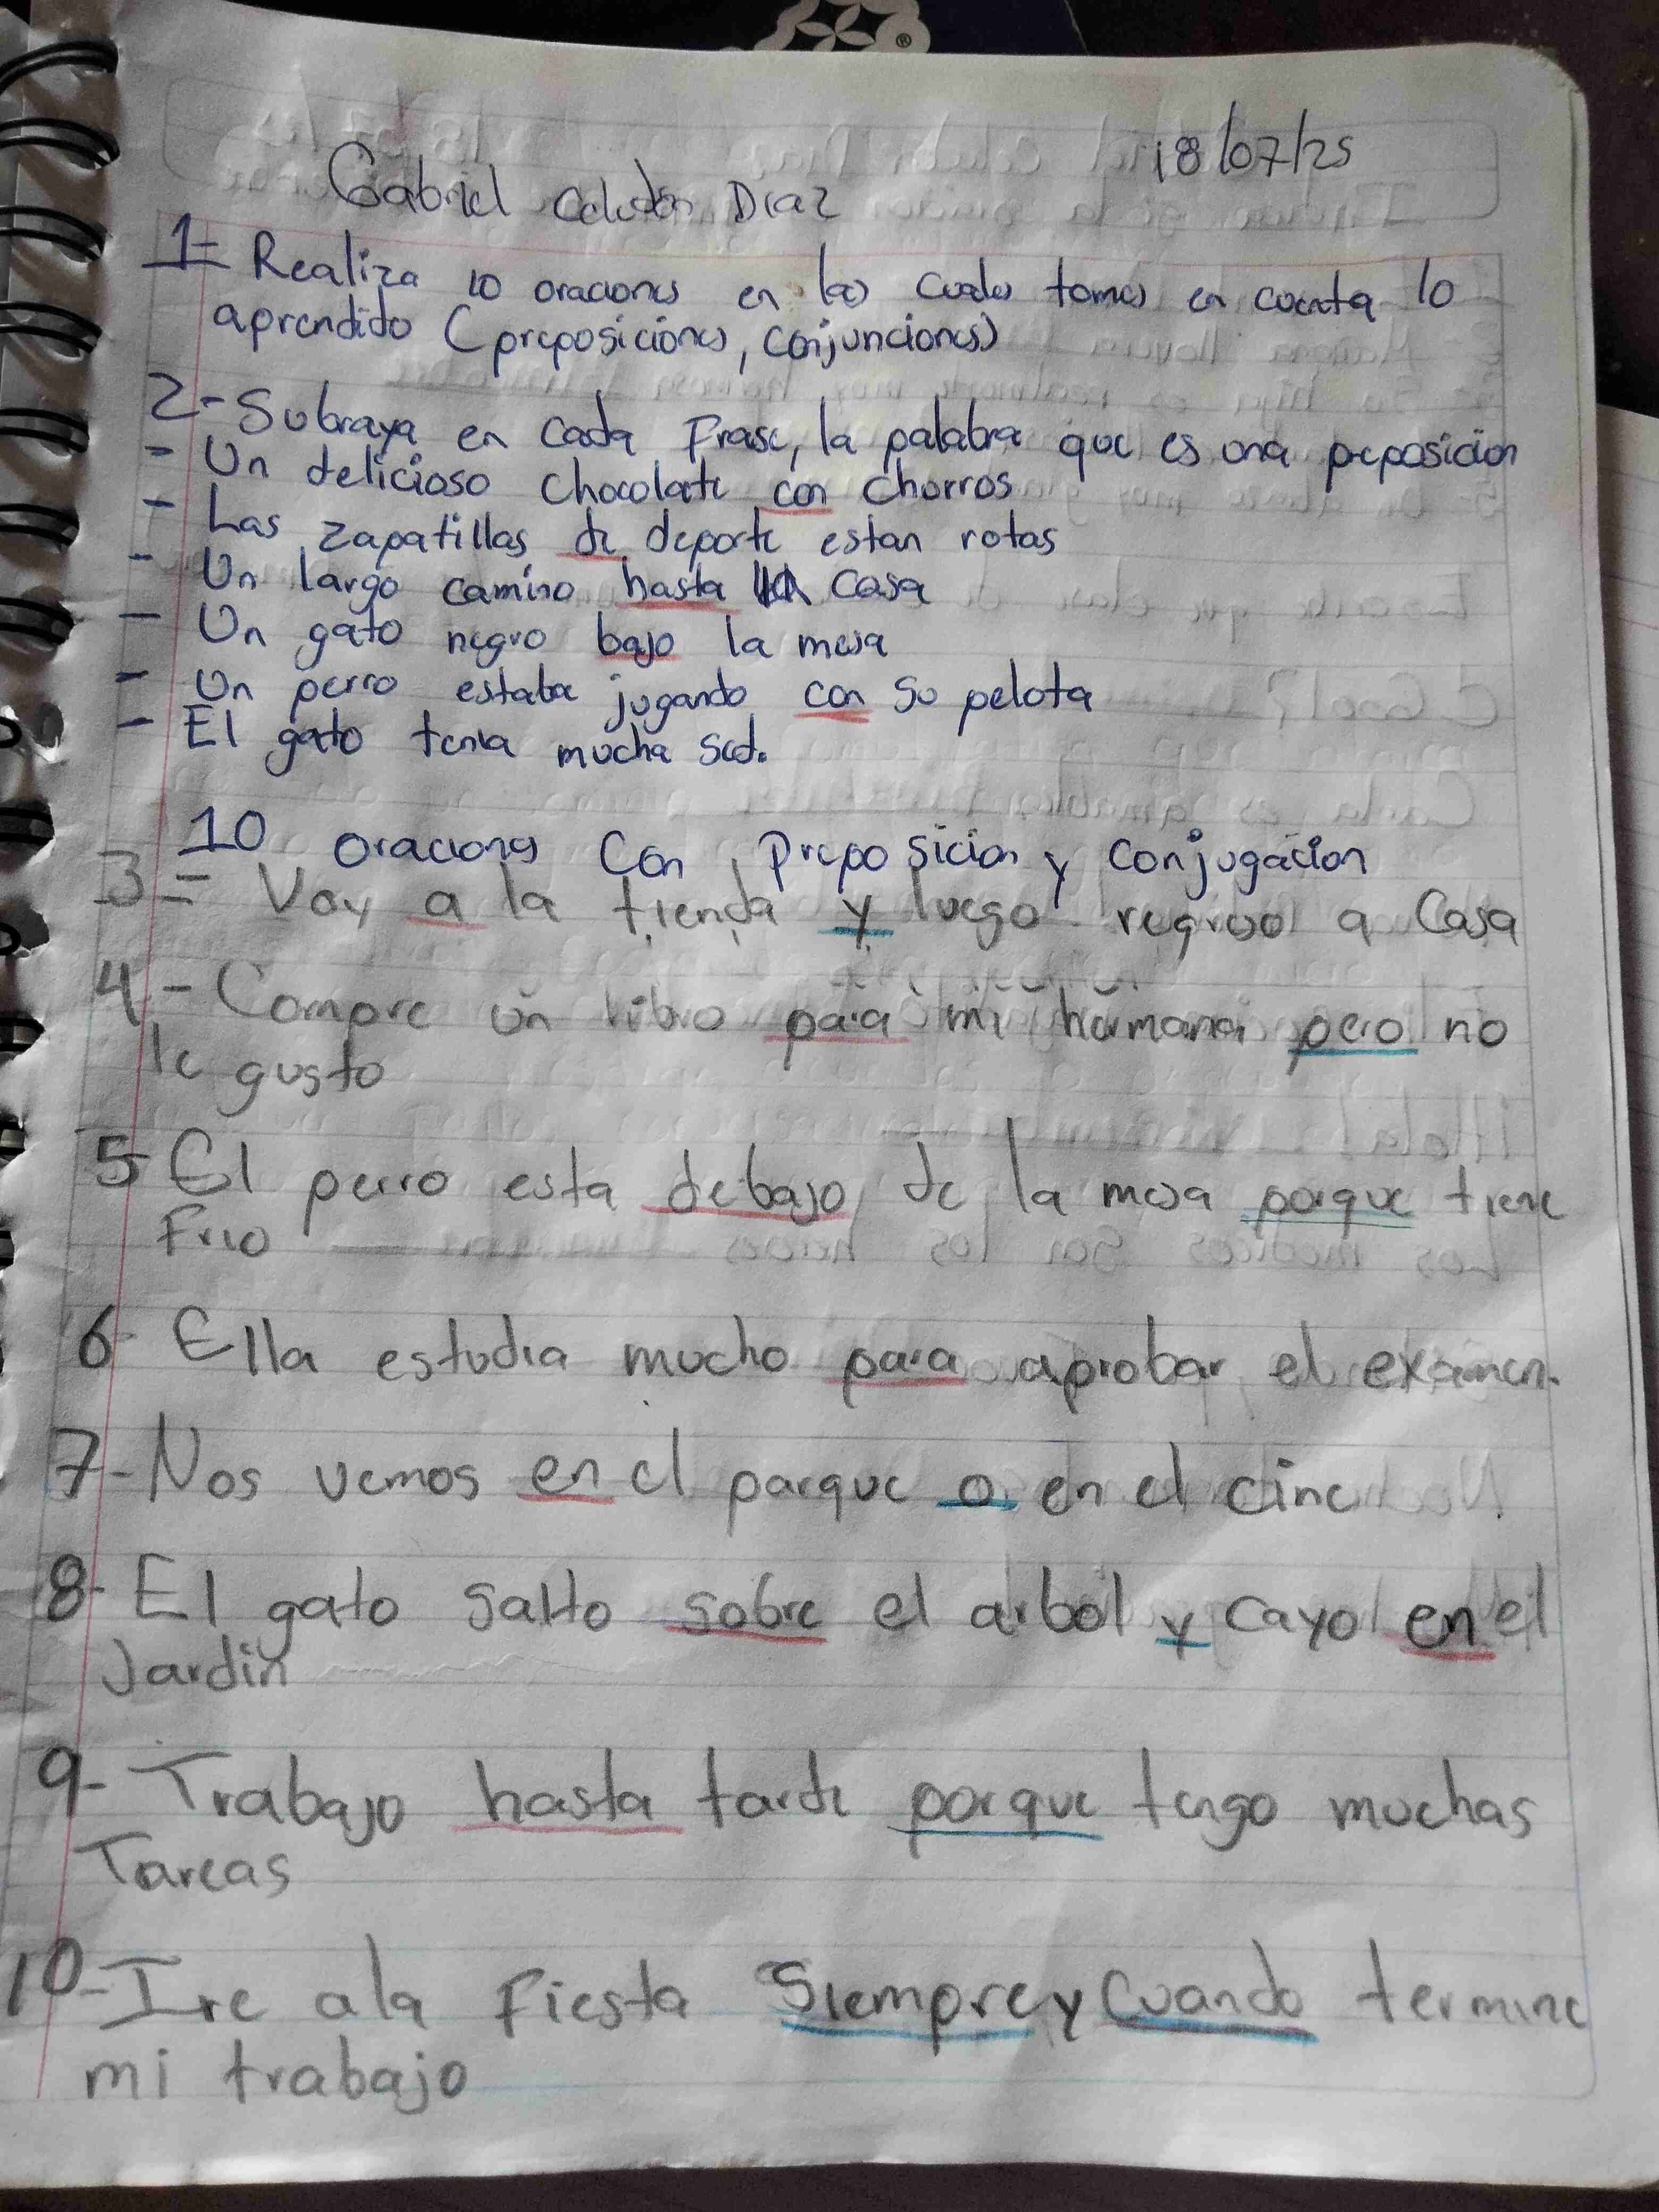 18/07/25
Gabriel Celedon Diaz
1- Realiza 10 oraciones en las cuales tomes en cuenta lo
aprendido (preposiciones, conjunciones)
2- Subraya en cada frase, la palabra que es una preposicion
- Un delicioso chocolate con chorros
- Las zapatillas de deporte estan rotas
- Un largo camino hasta casa
- Un gato negro bajo la mesa
- Un perro estaba jugando con su pelota
- El gato tenia mucha sed.
10 oraciones Con Preposicion y conjugacion
3- Voy a la tienda y luego regreso a Casa
4- Compre un libro para mi hermana pero no
le gusto
5- El perro esta debajo de la mesa porque tiene
Frio
6- Ella estudia mucho para aprobar el examen.
7- Nos vemos en el parque o en el cine
8- El gato salto sobre el arbol y cayo en el
Jardin
9- Trabajo hasta tarde porque tengo muchas
Tareas
10- Ire ala fiesta Siempre y Cuando termine
mi trabajo